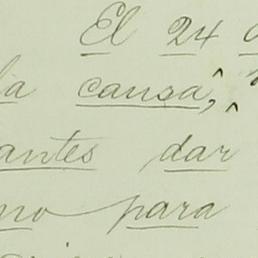 El 24
la causa,
antes dar
no para